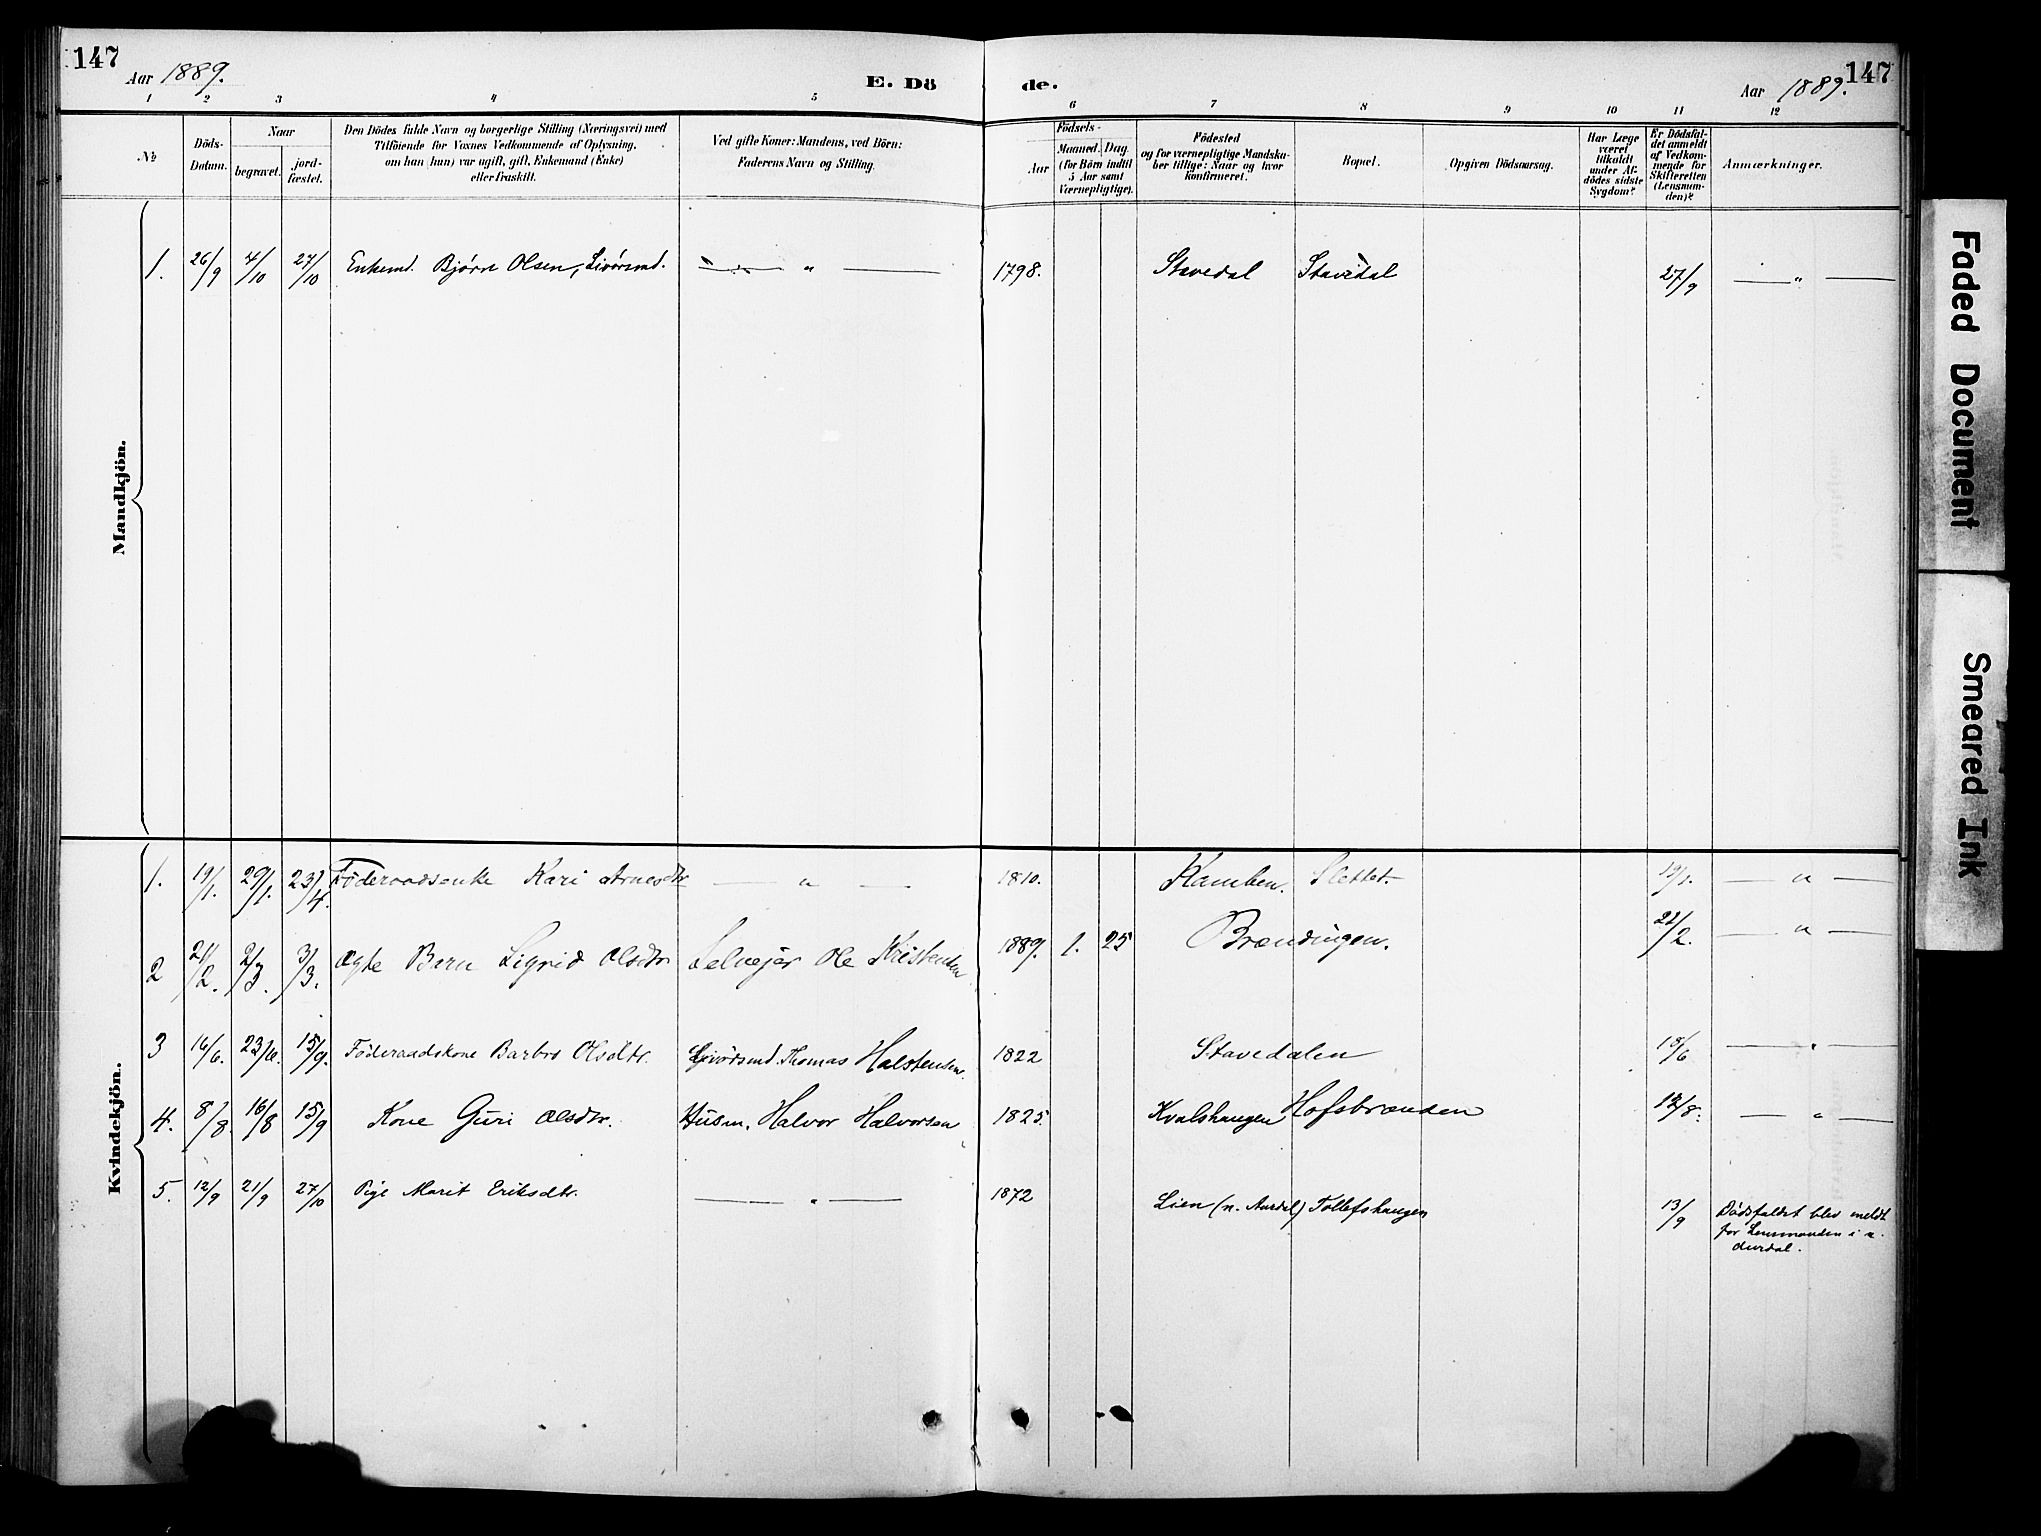 147
Aar 1889.
E. Dö
de.
Aar 1889.
147
1 2 3 4 5 6 7 8 9 10 11 12
№
Döds-Datum.
Naar
begravet.
jord-fæstet.
Den Dödes fulde Navn og borgerlige Stilling (Næringsvei) med
Tilföiende for Voxnes Vedkommende af Oplysning,
om han (hun) var ugift, gift, Enkemand (Enke)
eller fraskilt.
Ved gifte Koner: Mandens, ved Börn:
Faderens Navn og Stilling.
Födsels-
Aar
Maaned. Dag.
(for Börn indtil
5 Aar samt
Værnepligtige).
Födested
og for værnepligtige Mandska-
ber tillige: Naar og hvor
konfirmeret.
Bopæl.
Opgiven Dödsaarsag.
Har Læge
været
tilkaldt
under Af-
dödes sidste
Sygdom?
Er Dödsfal-
det anmeldt
af Vedkom-
mende for
Skifteretten
(Lensman-
den)?
Anmærkninger.
Mandkjön.
1. 26/9 4/10 27/10 Enkemd. Bjørn Olsen, Livørsmd. — " — 1798. Stavedal Stavedal 27/9 — " —
Kvindekjön.
1. 19/1. 29/1. 23/4. Föderaadsenke Kari Arnesdtr — " — 1810. Kamben. Slettet. 19/1. — " —
2 21/2. 2/3. 3/3. Ægte Barn Sigrid Olsdtr Selvejer Ole Kristensen 1889. 1. 25 Brændingen. 22/2. — " —
3 16/6. 23/6. 15/9. Föderaadskone Barbro Olsdtr. Livørsmd. Thomas Halstensen. 1822 Stavedalen 18/6 — " —
4. 8/8. 16/8 15/9 Kone Guri Olsdtr. Husm. Halvor Halvorsen 1825. Kvalshaugen Hofsbraaden 12/8. — " —
5. 12/9 21/9 27/10 Pige Marit Eriksdtr. — " — 1872 Lien (n. Aurdal) Tollefshaugen 13/9 Dödsfaldet blev meldt
for Lensmanden i n.
Aurdal.
Faded Document
Smeared Ink